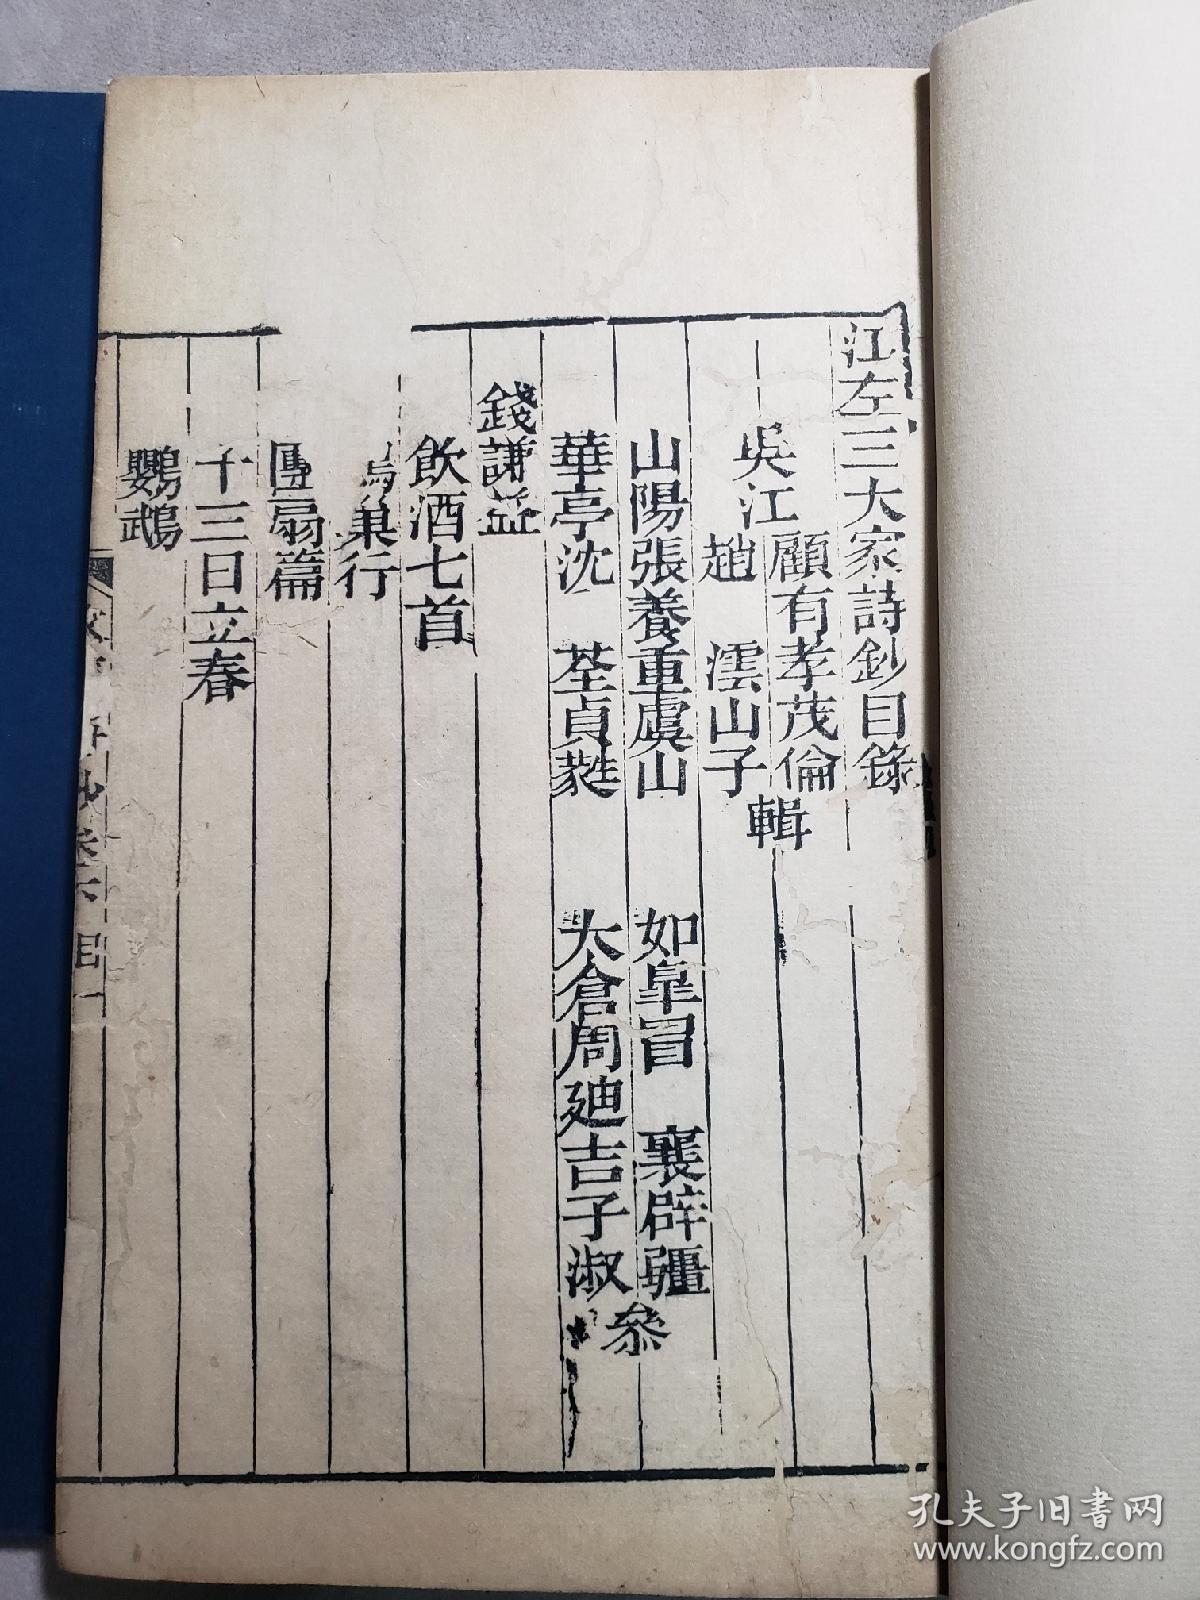 江左三大家詩鈔目錄
吳江
顧有孝茂倫
趙 澐山子
輯
山陽張養重虞山
如皐冒 襄辟疆
華亭沈 荃貞蕤
太倉周廸吉子淑
叅
錢謙益
飲酒七首
烏巢行
團扇篇
十三日立春
鸚鵡
詩鈔 卷六 目一
孔夫子旧书网
www.kongfz.com